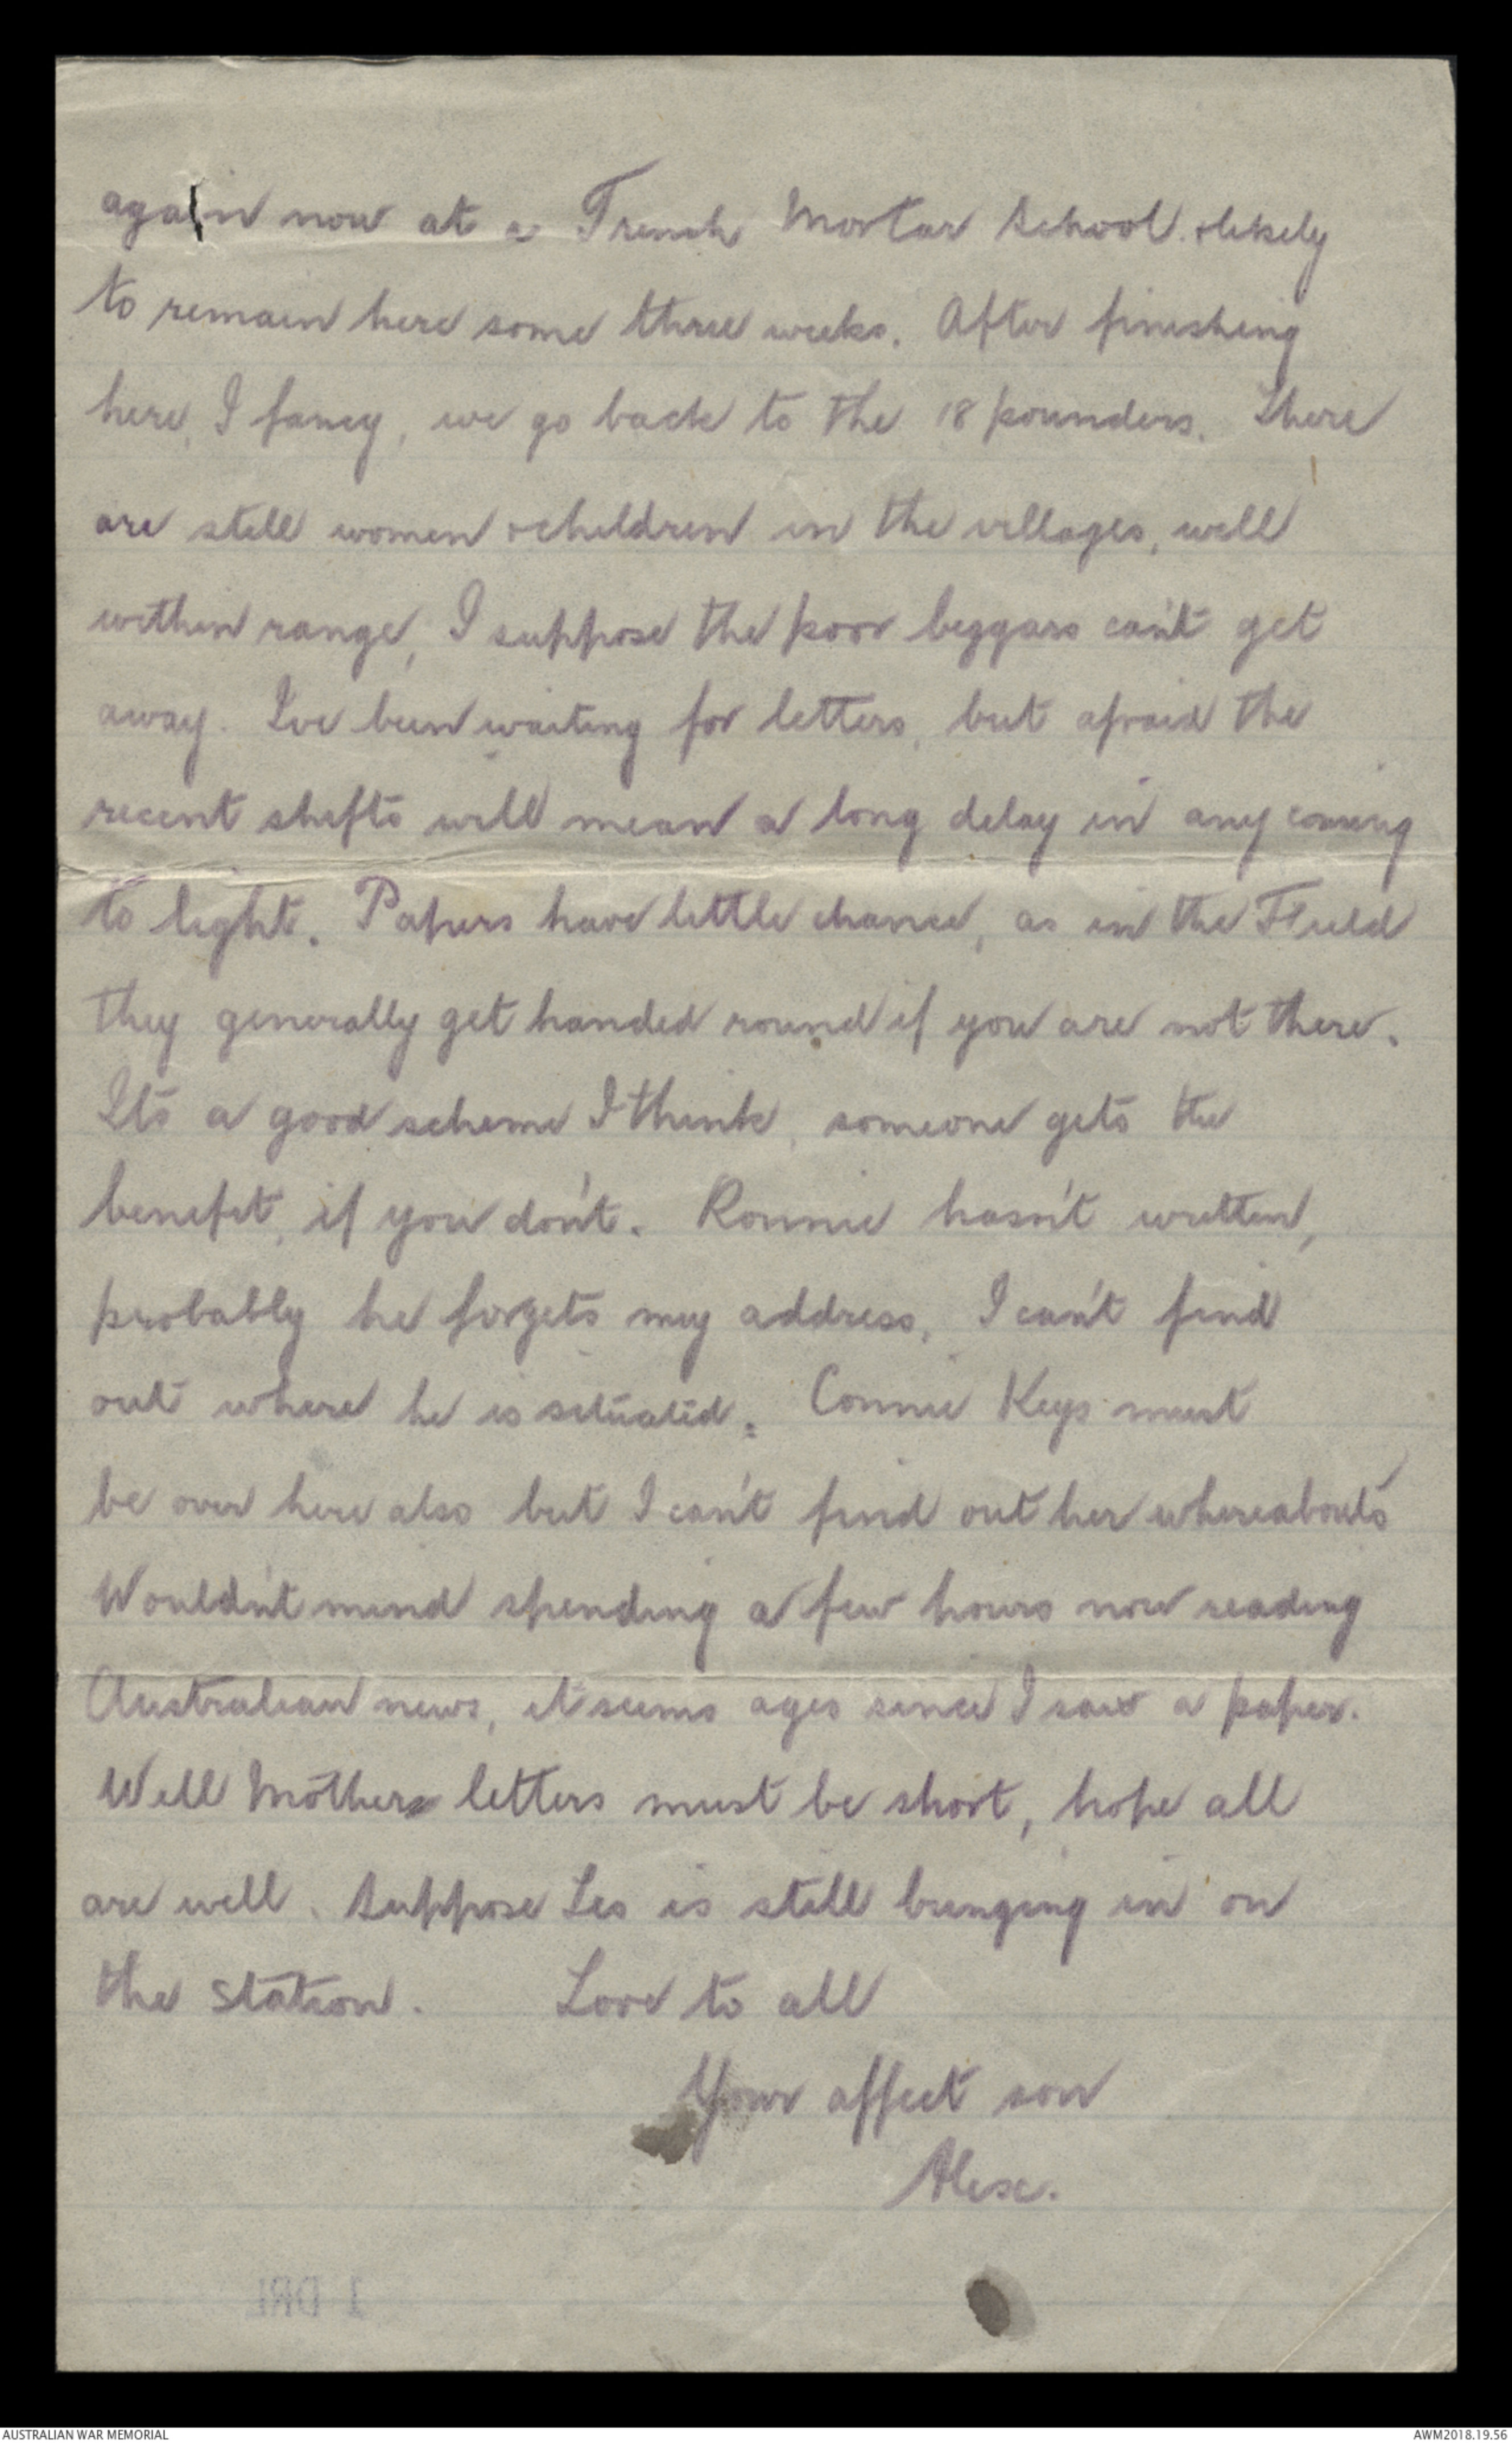 again now at a Trench Mortar School. & likely
to remain here some three weeks. After finishing
here, I fancy, we go back to the 18 pounders. There
are still women & children in the villages, well
within range, I suppose the poor beggars can't get
away. I've been waiting for letters, but afraid the
recent shifts will mean a long delay in any coming
to light. Papers have little chance, as in the Field
they generally get handed round if you are not there.
Its a good scheme I think, someone gets the
benefit, if you don't. Ronnie hasn't written,
probably he forgets my address, I can't find
out where he is situated. Connie Keys must
be over here also but I can't find out her whereabouts
Wouldn't mind spending a few hours now reading
Australian news, it seems ages since I saw a paper.
Well Mother letters must be short, hope all
are well. Suppose Les is still bringing in on
the station. Love to all
Your affect son
Alex.
1 DRL
AUSTRALIAN WAR MEMORIAL
AWM2018.19.56